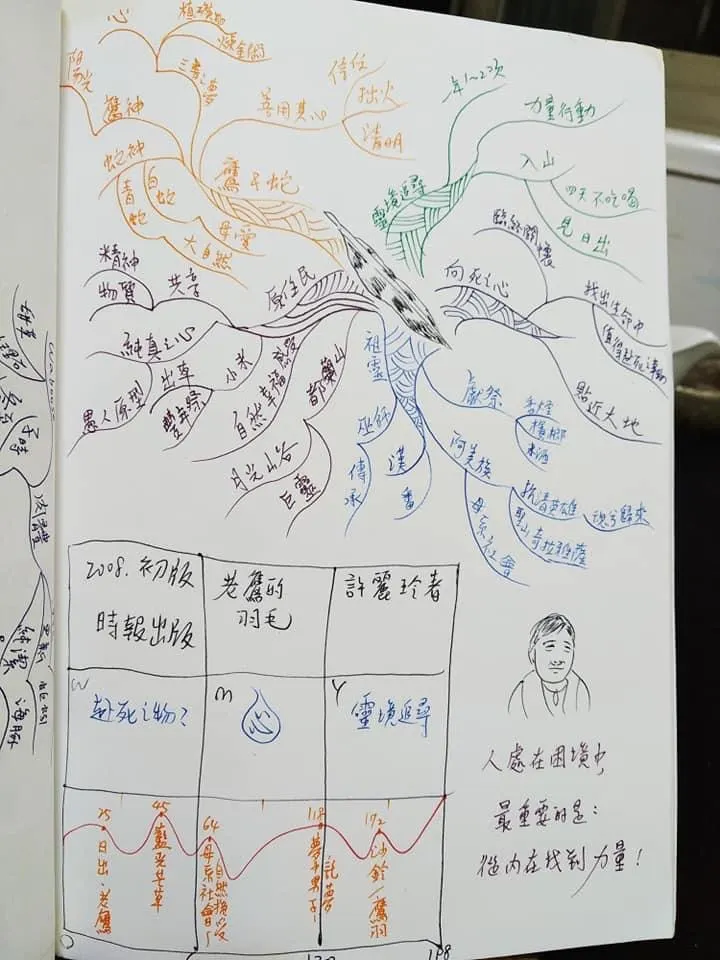 心
植礦物
煉金術
陽光
三毒之夢
鷹神
善用其心
信任
拙火
清明
蛇神
白蛇
青蛇
鷹與蛇
母愛
大自然
一年1~2次
力量行動
靈境追尋
入山
四天不吃喝
見日出
精神
物質
共享
原住民
純真之心
出草
小米
愚人原型
豐年祭
自然幸福
都蘭山
月光山谷
巨靈
臨終關懷
向死之心
找出生命中
值得赴死之事物
貼近大地
祖靈
巫師
傳承
漢
番
獻祭
香煙
檳榔
米酒
阿美族
母系社會
抗清英雄
魂兮歸來
聖山奇拉雅薩
2008.初版
時報出版
老鷹的
羽毛
許麗玲者
W
赴死之物?
M
心
Y
靈境追尋
25
日出、老鷹
45
藍光草草
64
母系社會
118
192
沙鈴/鷹羽
198
人處在困境中,
最重要的是:
從內在找到力量!